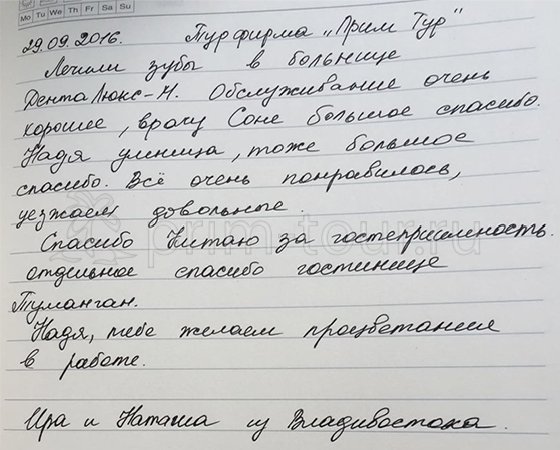 Mo Tu We Th Fr Sa Su
29.09.2016. Турфирма „Прим Тур"
Лечили зубы в больнице
Дента Люкс-Н. Обслуживание очень
хорошее, врачу Соне большое спасибо.
Надя умница, тоже большое
спасибо. Всё очень понравилось,
уезжаем довольные.
Спасибо Китаю за гостеприимность.
отдельное спасибо гостинице
Туманган.
Надя, тебе желаем процветания
в работе.
Ира и Наташа из Владивостока.
prim-tour.ru